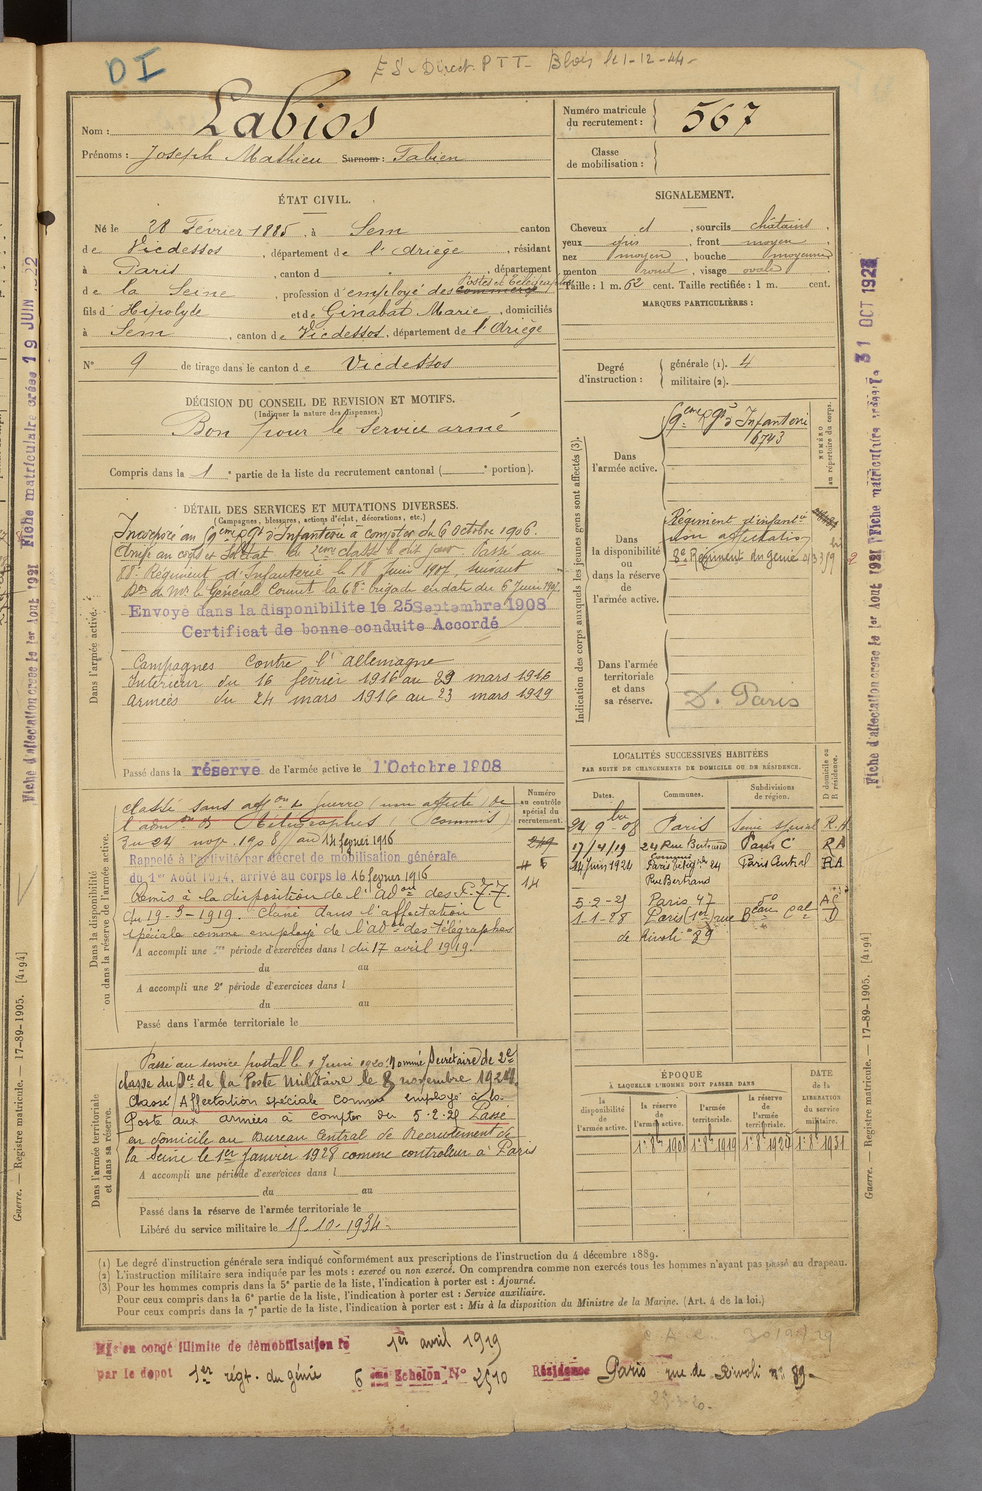 DI
ES. Direct. PTT- Blois 1-12-44-
Nom : Labios
Prénoms : Joseph Mathieu Surnom : Fabien
Numéro matricule du recrutement : 567
Classe de mobilisation :
ÉTAT CIVIL.
Né le 28 Février 1885, à Sem canton
de Vicdessos, département de l'Ariège, résidant
à Paris, canton d , département
de la Seine, profession d'employé des commerce Postes et Télégraphes
fils d'Hipolyte et de Ginabat Marie, domiciliés
à Sem, canton de Vicdessos, département de l'Ariège
N° 9 de tirage dans le canton de Vicdessos
SIGNALEMENT.
Cheveux et, sourcils châtains,
yeux gris, front moyen,
nez moyen, bouche moyenne
menton rond, visage ovale
Taille : 1 m. 62 cent. Taille rectifiée : 1 m. cent.
MARQUES PARTICULIÈRES :
Degré d'instruction : générale (1). 4
militaire (2).
DÉCISION DU CONSEIL DE REVISION ET MOTIFS.
(Indiquer la nature des dispenses.)
Bon pour le service armé
Compris dans la 1 e partie de la liste du recrutement cantonal ( e portion).
DÉTAIL DES SERVICES ET MUTATIONS DIVERSES.
(Campagnes, blessures, actions d'éclat, décorations, etc.)
Dans l'armée active.
Incorporé au 9ème Rgt d'Infanterie à compter du 6 Octobre 1906.
Arrivé au corps et soldat de 2eme classe le dit jour. Passé au
88e Régiment d'Infanterie le 18 Juin 1907, suivant
de Mr le Général Commt la 68e brigade en date du 6 Juin 1907.
Envoyé dans la disponibilité le 25 Septembre 1908
Certificat de bonne conduite Accordé
Campagnes contre l'Allemagne
Intérieur du 16 février 1916 au 23 mars 1916
Armées du 24 mars 1916 au 23 mars 1919
Passé dans la réserve de l'armée active le 1 Octobre 1908
Indication des corps auxquels les jeunes gens sont affectés (3).
NUMÉRO au répertoire du corps.
Dans l'armée active. 9eme Rgt d'Infanterie
6743
Dans la disponibilité ou dans la réserve de l'armée active.
Régiment d'infantie
non affectation
Régiment du génie
Dans l'armée territoriale et dans sa réserve.
D. Paris
LOCALITÉS SUCCESSIVES HABITÉES
PAR SUITE DE CHANGEMENTS DE DOMICILE OU DE RÉSIDENCE.
Dates. Communes. Subdivisions de région. D domicile ou R résidence.
24 9bre 08 Paris Seine spécial R.A
17/4/19 24 Rue Bertrand Paris C RA
24 juin 1924 Paris 24 Rue Bertrand Paris Central RA
5-2-21 Paris 47
1-1-28 Paris 1er rue de Rivoli 89 Beau Cal D
Dans la disponibilité ou dans la réserve de l'armée active.
Numéro au contrôle spécial du recrutement.
Classé sans affon de guerre (non affecté) de
l'admon des télégraphes (commis)
du 24 nov. 1908 au 14 février 1916
Rappelé à l'activité par décret de mobilisation générale
du 1er Août 1914, arrivé au corps le 16 février 1916
Remis à la disposition de l'adon des P.T.T.
du 19-3-1919. Classé dans l'affectation
spéciale comme employé de l'adon des Télégraphes
A accompli une 1re période d'exercices dans l du 17 avril 1919.
du au
A accompli une 2e période d'exercices dans l
du au
Passé dans l'armée territoriale le
Dans l'armée territoriale et dans sa réserve.
Passé au service postal le 1 Juin 1920. Nommé Secrétaire de 2e
classe du de la Poste Militaire le 8 novembre 1924.
Classé Affectation spéciale comme employé à la
Poste aux armées à compter du 5-2-21 Passé
en domicile au Bureau Central de Recrutement de
la Seine le 1er janvier 1928 comme controleur à Paris
A accompli une période d'exercices dans l
du au
Passé dans la réserve de l'armée territoriale le
Libéré du service militaire le 15-10-1934-
ÉPOQUE
À LAQUELLE L'HOMME DOIT PASSER DANS
la disponibilité de l'armée active. la réserve de l'armée active. l'armée territoriale. la réserve de l'armée territoriale. DATE de la LIBÉRATION du service militaire.
1er 8bre 1908 1er 8bre 1919 1er 8bre 1924 1er 8bre 1931
(1) Le degré d'instruction générale sera indiqué conformément aux prescriptions de l'instruction du 4 décembre 1889.
(2) L'instruction militaire sera indiquée par les mots : exercé ou non exercé. On comprendra comme non exercés tous les hommes n'ayant pas passé au drapeau.
(3) Pour les hommes compris dans la 5e partie de la liste, l'indication à porter est : Ajourné.
Pour ceux compris dans la 6e partie de la liste, l'indication à porter est : Service auxiliaire.
Pour ceux compris dans la 7e partie de la liste, l'indication à porter est : Mis à la disposition du Ministre de la Marine. (Art. 4 de la loi.)
Mis en congé illimité de démobilisation le 1er avril 1919
par le dépôt 1er régt. du génie 6 ème Echelon N° 2510 Résidence Paris rue de Rivoli n° 89-
Guerre. — Registre matricule. — 17-89-1905. [4194]
Fiche d'affectation créée le 1er Août 1921 Fiche matriculaire créée 19 JUIN
Guerre. — Registre matricule. — 17-89-1905. [4194]
Fiche d'affectation créée le 1er Août 1921 Fiche matriculaire 31 OCT